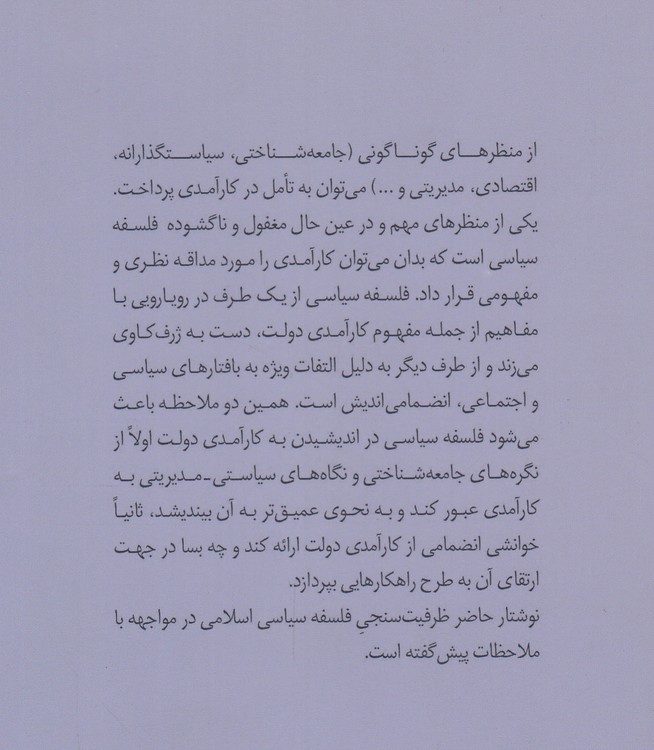 از منظرهای گوناگونی (جامعه‌شناختی، سیاستگذارانه،
اقتصادی، مدیریتی و ...) می‌توان به تأمل در کارآمدی پرداخت.
یکی از منظرهای مهم و در عین حال مغفول و ناگشوده فلسفه
سیاسی است که بدان می‌توان کارآمدی را مورد مداقه نظری و
مفهومی قرار داد. فلسفه سیاسی از یک طرف در رویارویی با
مفاهیم از جمله مفهوم کارآمدی دولت، دست به ژرف‌کاوی
می‌زند و از طرف دیگر به دلیل التفات ویژه به بافتارهای سیاسی
و اجتماعی، انضمامی‌اندیش است. همین دو ملاحظه باعث
می‌شود فلسفه سیاسی در اندیشیدن به کارآمدی دولت اولاً از
نگره‌های جامعه‌شناختی و نگاه‌های سیاستی-مدیریتی به
کارآمدی عبور کند و به نحوی عمیق‌تر به آن بیندیشد، ثانیاً
خوانشی انضمامی از کارآمدی دولت ارائه کند و چه بسا در جهت
ارتقای آن به طرح راهکارهایی بپردازد.
نوشتار حاضر ظرفیت‌سنجیِ فلسفه سیاسی اسلامی در مواجهه با
ملاحظات پیش‌گفته است.